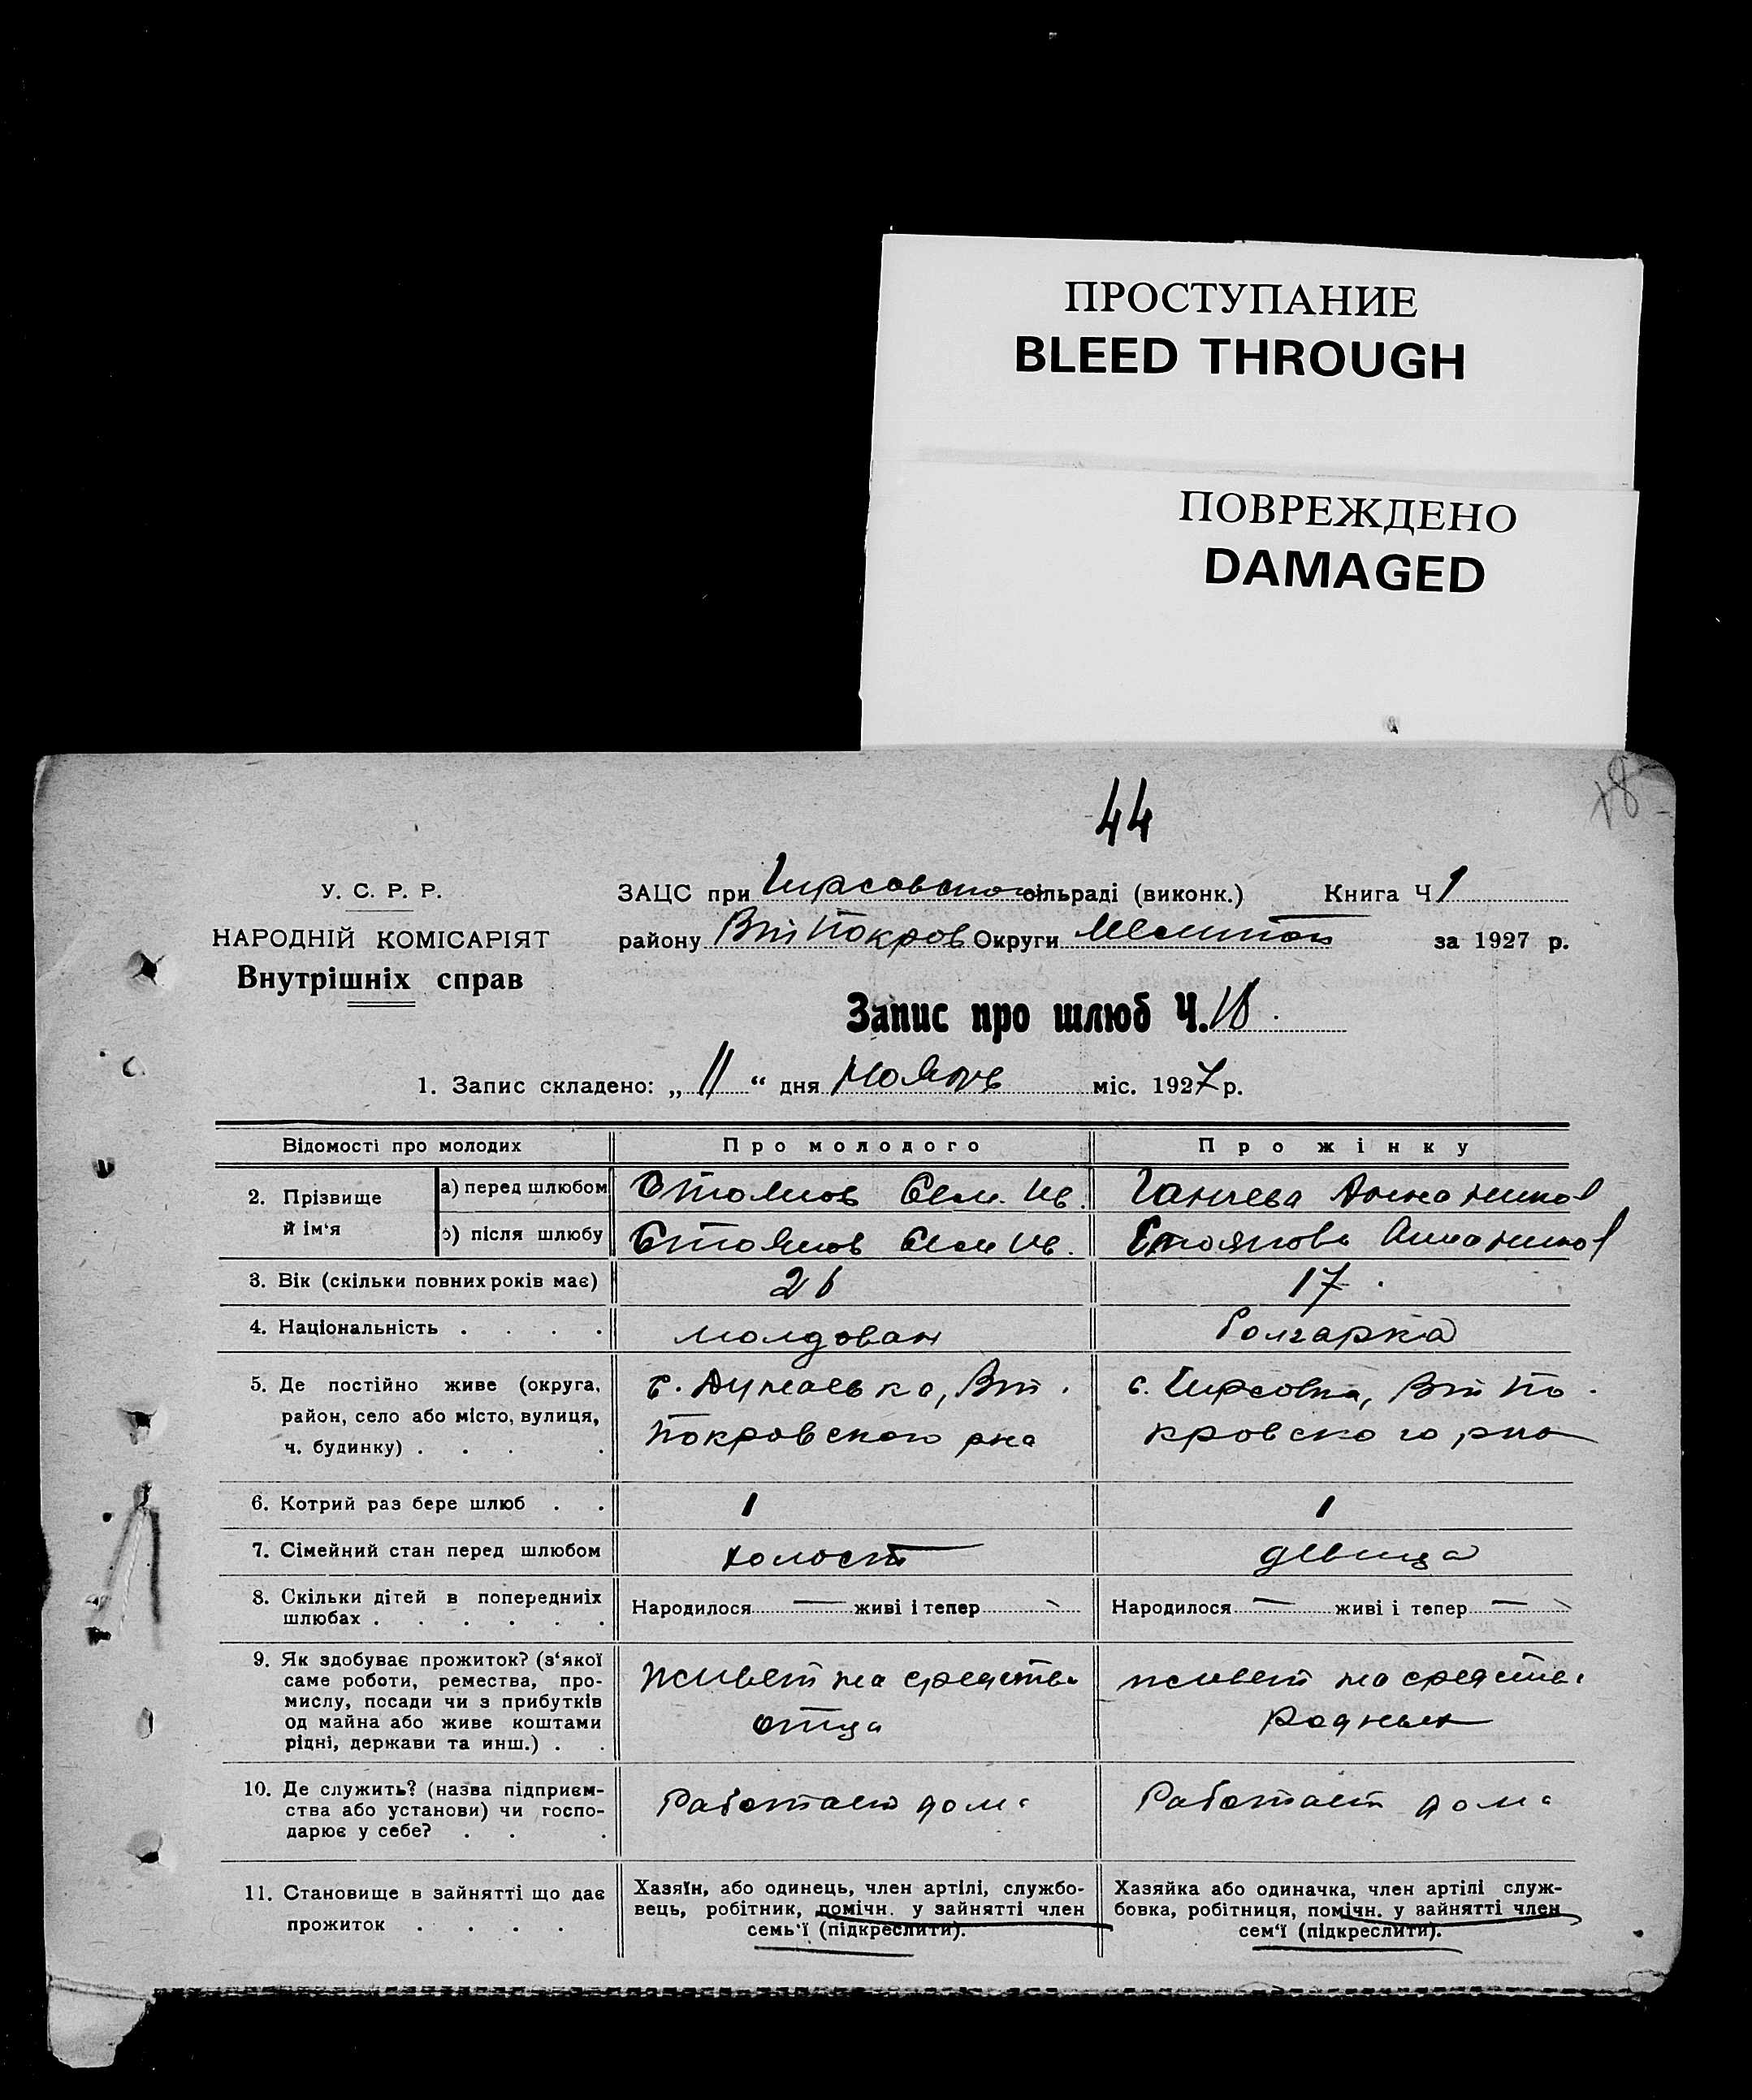 ПРОСТУПАНИЕ
BLEED THROUGH
ПОВРЕЖДЕНО
DAMAGED
44
У. С. Р. Р.
НАРОДНІЙ КОМІСАРІЯТ
Внутрішніх справ
ЗАЦС при Гирсовском сільраді (виконк.) Книга Ч 1
району Вт Покров Округи Мелитоп за 1927 р.
Запис про шлюб Ч. 18.
1. Запис складено: „ 11 “ дня Ноябрь міс. 1927 р.
Відомості про молодих
Про молодого
Про жінку
2. Прізвище й ім‘я
а) перед шлюбом Стоянов Сем. Ив. Ганчева Анна Никол
б) після шлюбу Стоянов Сем Ив. Стоянова Анна Никол
3. Вік (скільки повних років має) 26 17.
4. Національність . . . . молдован болгарка
5. Де постійно живе (округа, район, село або місто, вулиця, ч. будинку) . . .
с. Дунаевка, Вт.
Покровского рна
с. Гирсовка, Вт По
кровского рна
6. Котрий раз бере шлюб . . 1 1
7. Сімейний стан перед шлюбом холост девица
8. Скільки дітей в попередниіх шлюбах . . . . . .
Народилося — живі і тепер
Народилося — живі і тепер —
9. Як здобуває прожиток? (з‘якої саме роботи, ремества, промислу, посади чи з прибутків од майна або живе коштами рідні, держави та инш.) . .
живет на средства
отца
живет на средства
родных
10. Де служить? (назва підприємства або установи) чи господарює у себе? . . .
Работает дома
Работает дома
11. Становище в зайнятті що дає прожиток . . . .
Хазяїн, або одинець, член артілі, службо-
вець, робітник, помічн. у зайнятті член
семь‘ї (підкреслити).
Хазяйка або одиначка, член артілі служ-
бовка, робітниця, помічн. у зайнятті член
сем‘ї (підкреслити).